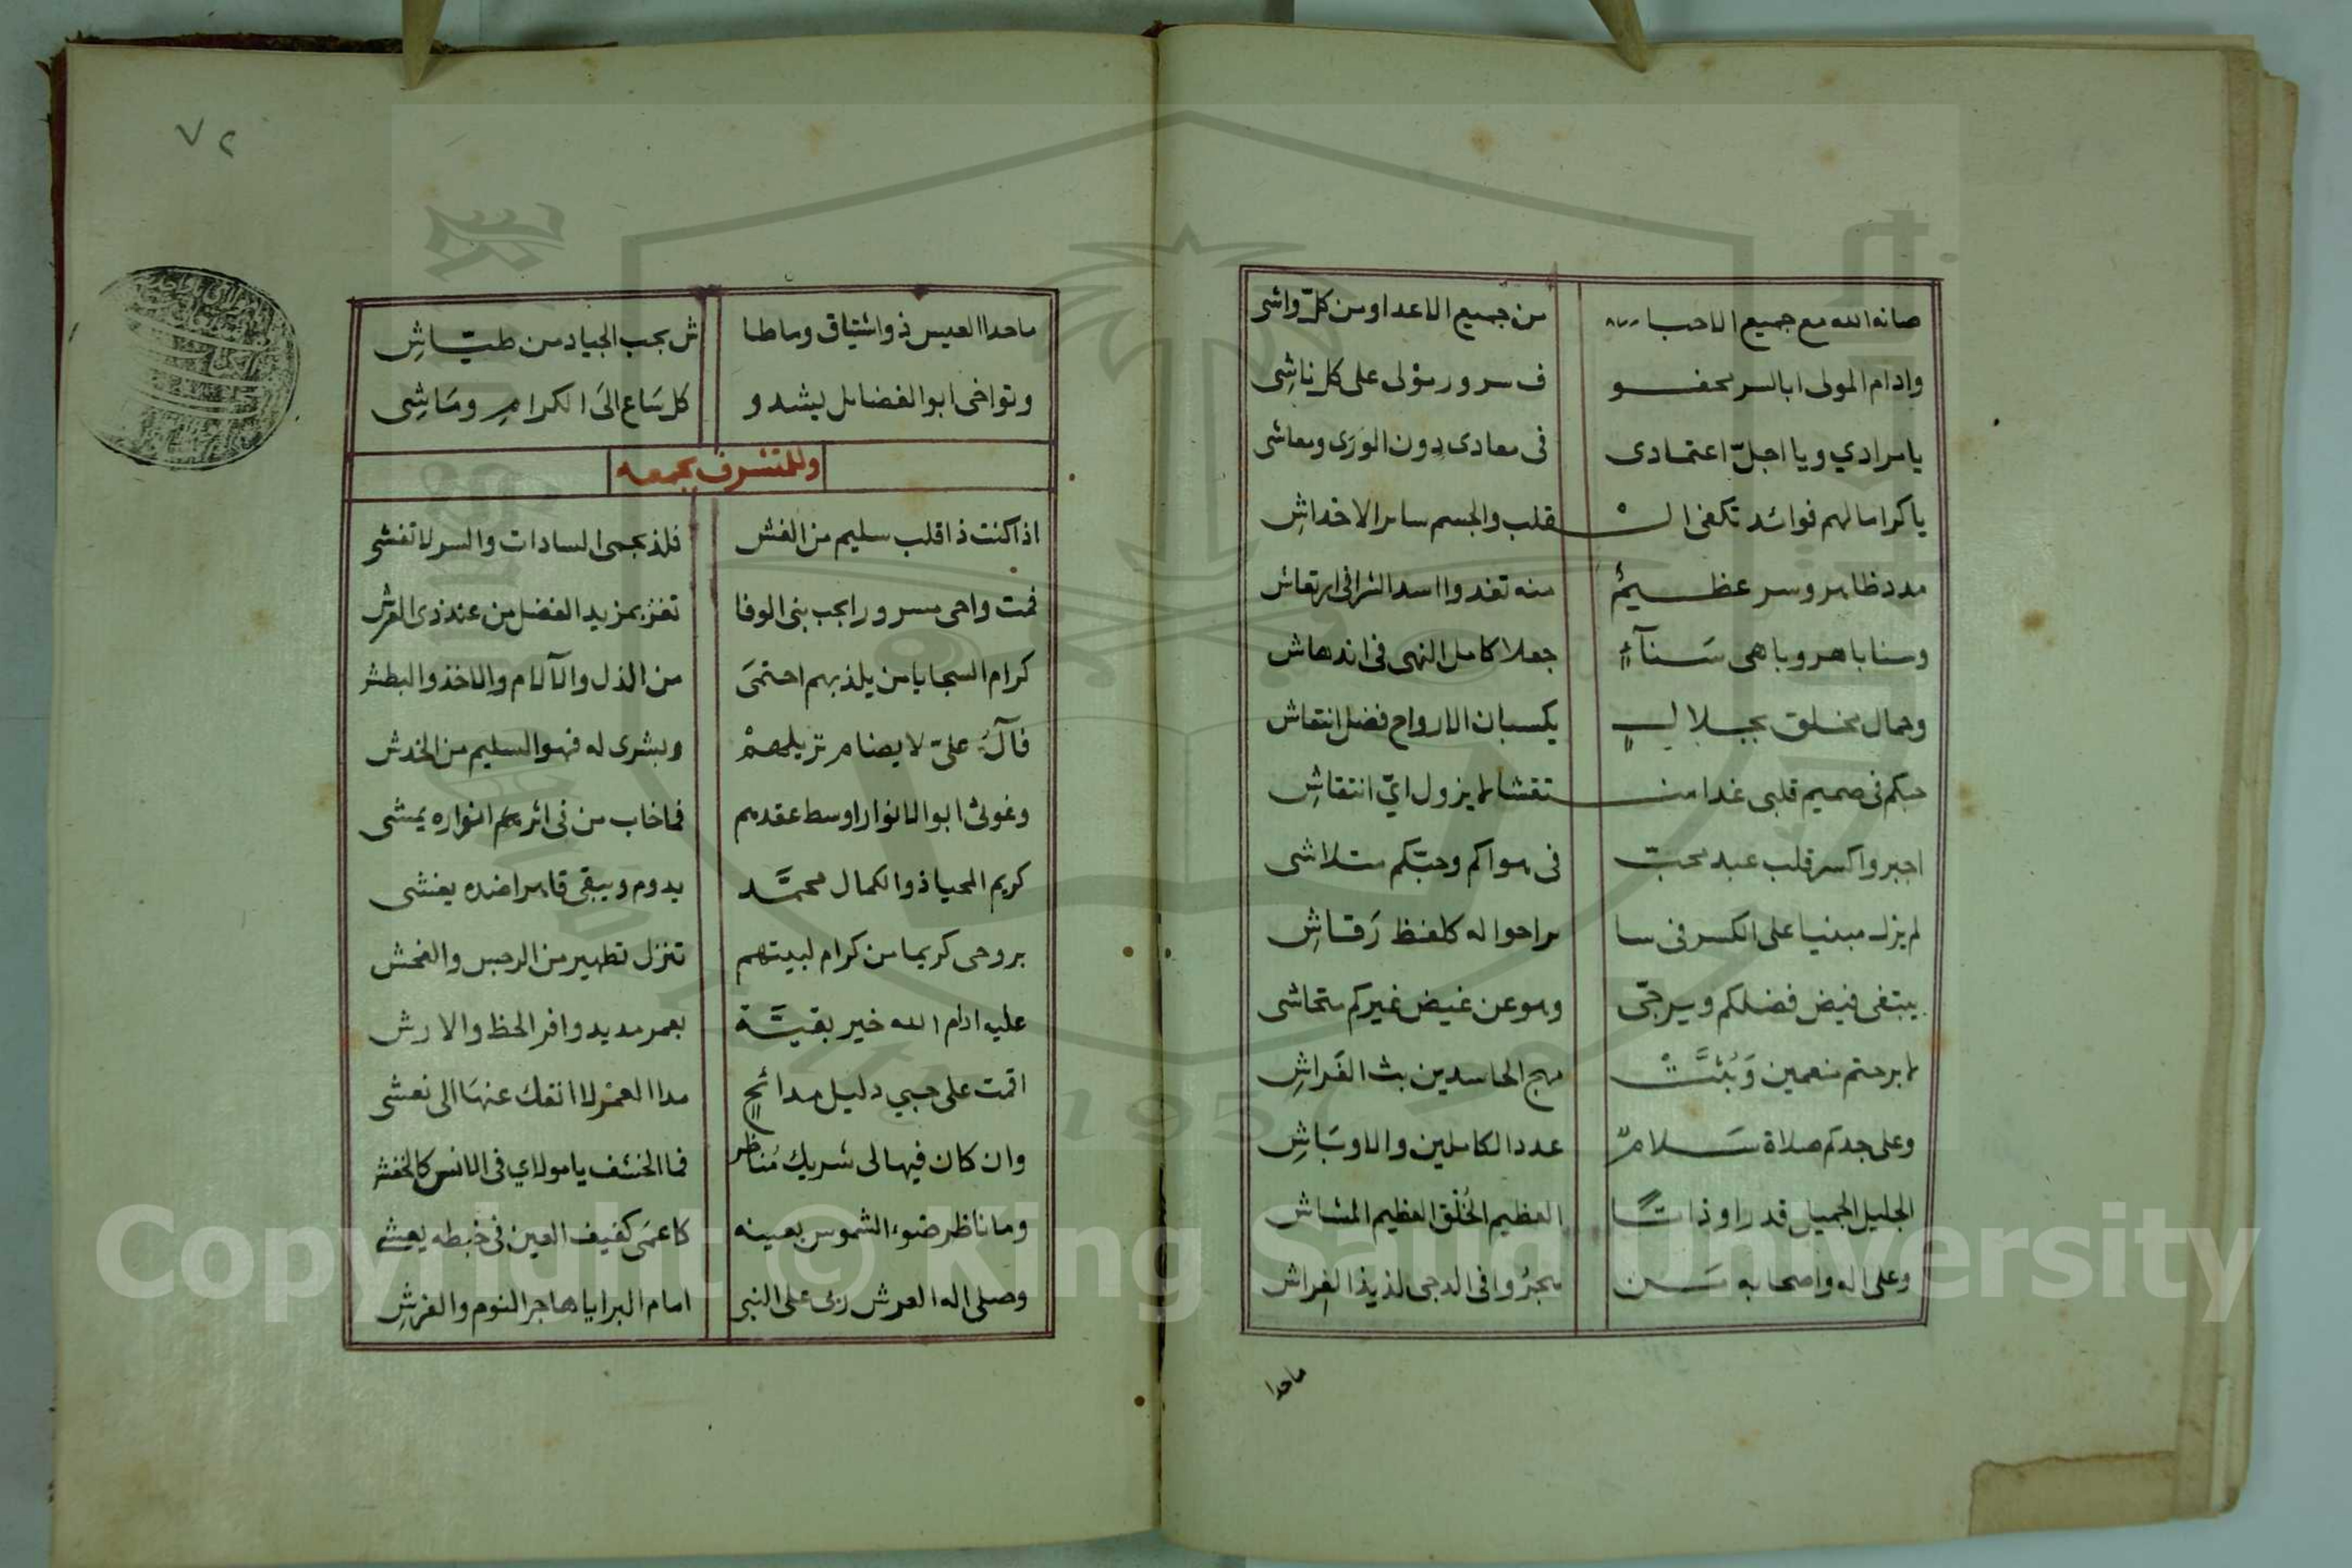 صانه الله مع جميع الاحبا من جميع الاعدا ومن كلّ واشى
وادام المولى ابا السر محفو ف سرور مولى على كل ناشِى
يا مرادي ويا اجلّ اعتمادى فى معادى دون الورَى ومعاشى
يا كراما لهم فوائد تكفى الـ ـقلب والجسم ساىر الاخداشِ
مدد ظاهر وسر عظيمٌ منه تغدوا اسد الشرا فى ارتعاش
وسنا باهر وباهى سَنآءٍ جعلا كامل النهى فى اندهاش
وجمال مخلق بجلالٍ يكسبان الارواح فضل انتعاش
حبكم فى صميم قلبى غدا منـ ـتقشا لا يزول ايّ انتقاشِ
اجبروا كسر قلب عبد محبّ فى هواكم وحبّكم متلاشى
لم يزل مبنيا على الكسر فى سا براحوا له كلفظ رَقاشِ
يبتغى فيض فضلكم ويرجّى وهو عن غيض غيركم متحاشى
لا برحتم منعمين وَبُثَّتْ مهج الحاسدين بث الفَراشِ
وعلى جدكم صلاة سَلامٌ عدد الكاملين والاوبَاشِ
الجليل الجميل قدرا وذاتًا العظيم الخُلق العظيم المشاش
وعلى اله واصحابه مَن هجرُوا فى الدجى لذيذ الفِراش
ماحدا
٧٢
ماحدا العيس ذو اشتياق وما طا ش بحب الجياد من طيّاشِ
وتواخى ابو الفضائل يشدو كل سَاع الىَ الكرامِ ومَاشِى
وللمتشرف بجمعه
اذا كنت ذا قلب سليم من الغش فلذ بحمى السادات والسر لا تفشى
فمت واحى مسرورا بحب بنى الوفا تفز بمزيد الفضل من عند ذى العرش
كرام السجايا من يلذ بهم احتمَى من الذل والآلام والاخذ والبطش
فآلُ علىّ لا يضام نزيلهمْ وبشرى له فهو السليم من الخدش
وغوثى ابو الانوار اوسط عقدهم فما خاب من فى اثرهم انواره يمشى
كريم المحيا ذو الكمال محمَّد يدوم ويبقى قاهرا ضده يغشى
بروحى كريما من كرام لبيتهم تنزل تطهير من الرجس والفحش
عليه ادام الله خير بقيَّة بعمر مديد وافر الحظ والارش
اقمت على حبي دليل مدائحٍ مدا العمْر لا انفك عنهَا الى نعشى
وان كان فيها لى شريك مُناظر فما الخشف يا مولاي فى الانس كالخفش
وما ناظر ضوء الشموس بعينه كاعمَى كفيف العين فى خبطه يعشى
وصلى اله العرش ربى على النبى امام البرايا هاجر النوم والفرشِ
Copyright © King Saud University
1957